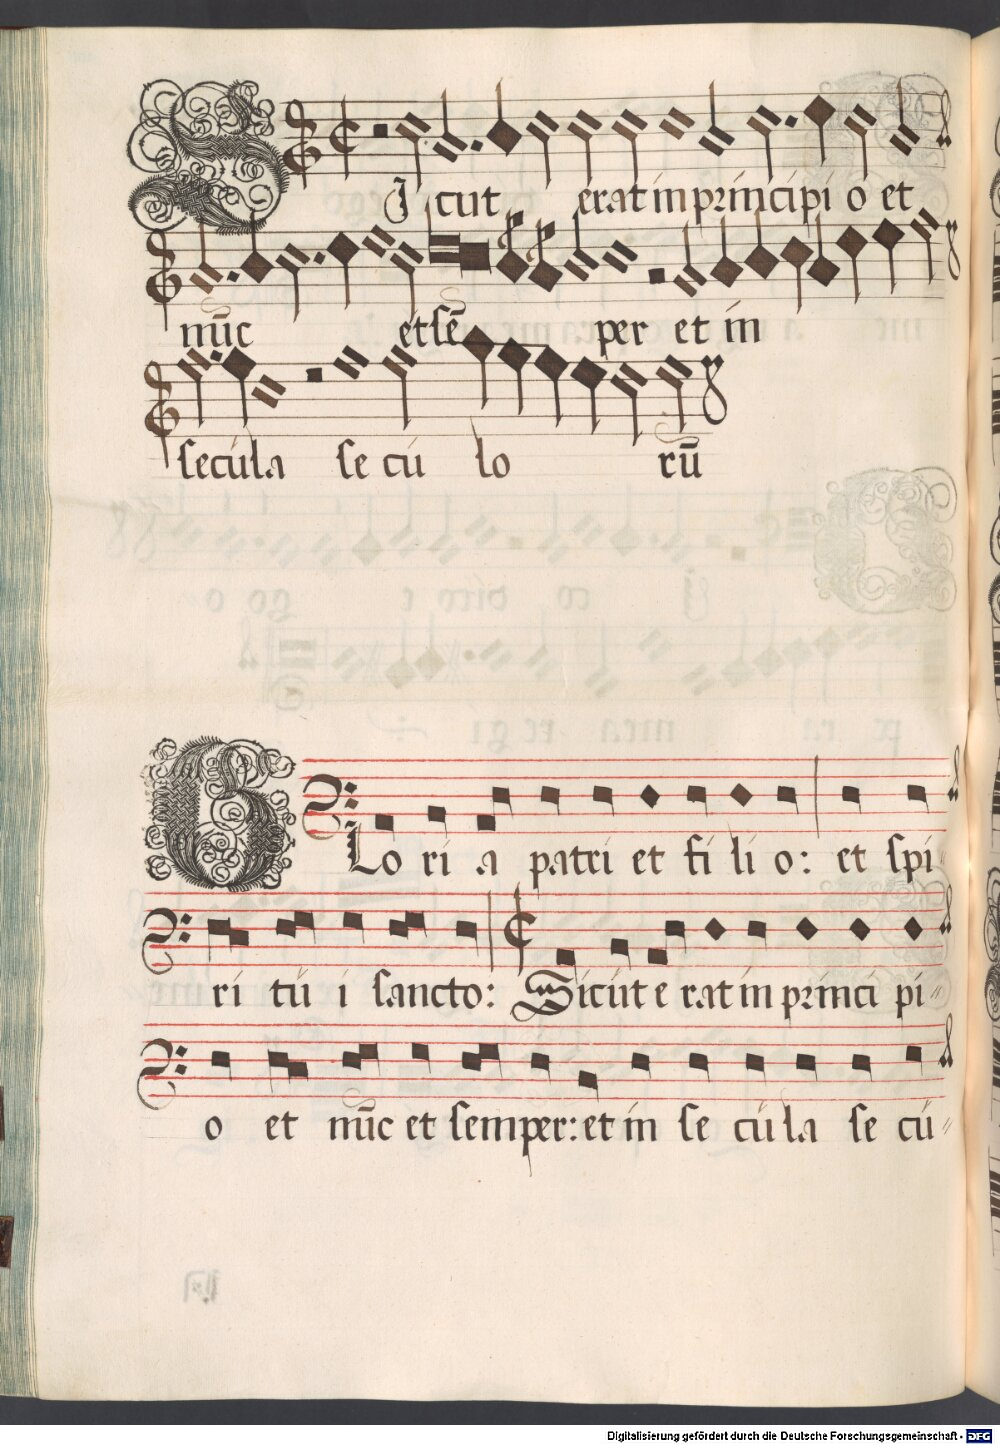 Sicut erat in principi o et
nūc et sē per et in
secula se cu lo rū
Glo ri a patri et fi li o: et spi
ri tu i sancto: Sicut e rat in princi pi
o et nūc et semper: et in se cu la se cu
Digitalisierung gefördert durch die Deutsche Forschungsgemeinschaft - DFG